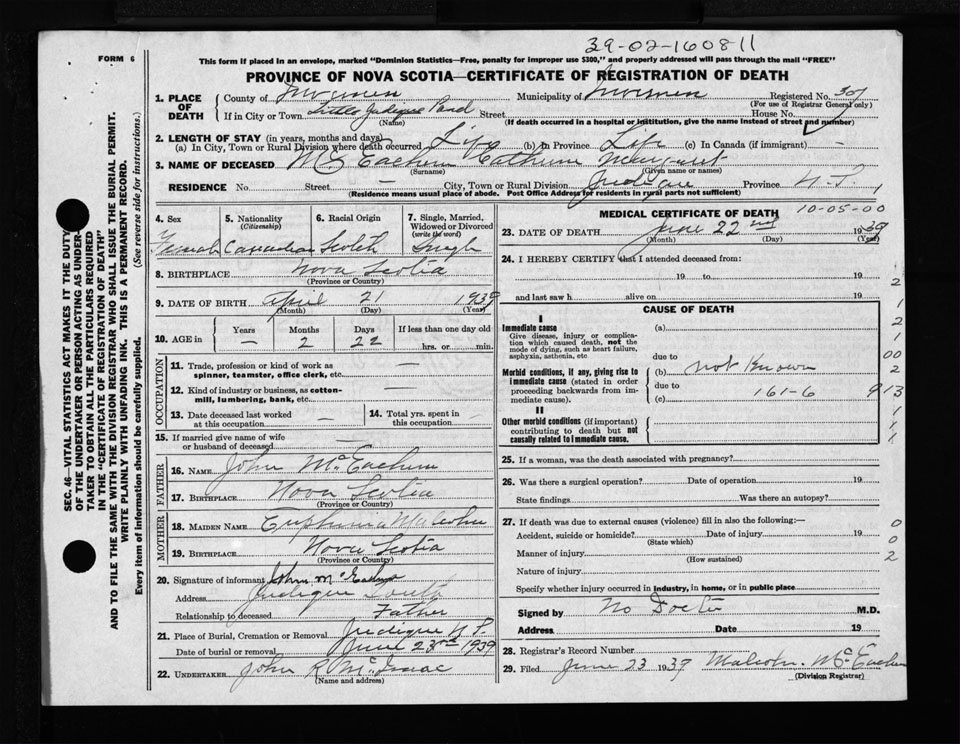 39-02-160811
FORM 6
This form if placed in an envelope, marked "Dominion Statistics—Free, penalty for improper use $300," and properly addressed will pass through the mail "FREE"
PROVINCE OF NOVA SCOTIA—CERTIFICATE OF REGISTRATION OF DEATH
1. PLACE OF DEATH
County of Inverness Municipality of Inverness Registered No. 307
(For use of Registrar General only)
If in City or Town Little Judique Pond Street House No.
(Name) (If death occurred in a hospital or institution, give the name instead of street and number)
2. LENGTH OF STAY (in years, months and days)
(a) In City, Town or Rural Division where death occurred Life (b) in Province Life (c) In Canada (if immigrant) —
3. NAME OF DECEASED McEachern Catherine Margaret
(Surname) (Given name or names)
RESIDENCE No. Street — City, Town or Rural Division Province N.S.
(Residence means usual place of abode. Post Office Address for residents in rural parts not sufficient)
4. Sex Female
5. Nationality (Citizenship) Canadian
6. Racial Origin Scotch
7. Single, Married, Widowed or Divorced (write the word) Single
8. BIRTHPLACE Nova Scotia
(Province or Country)
9. DATE OF BIRTH April 21 1939
(Month) (Day) (Year)
10. AGE in Years — Months 2 Days 22 If less than one day old hrs. or min.
OCCUPATION
11. Trade, profession or kind of work as spinner, teamster, office clerk, etc. —
12. Kind of industry or business, as cotton-mill, lumbering, bank, etc. —
13. Date deceased last worked at this occupation —
14. Total yrs. spent in this occupation —
15. If married give name of wife or husband of deceased —
FATHER
16. NAME John McEachern
17. BIRTHPLACE Nova Scotia
(Province or Country)
MOTHER
18. MAIDEN NAME Euphemia
19. BIRTHPLACE Nova Scotia
(Province or Country)
20. Signature of informant John McEachern
Address Judique South
Relationship to deceased Father
21. Place of Burial, Cremation or Removal Judique N.S.
Date of burial or removal June 23rd 1939
22. UNDERTAKER John R McIsaac
(Name and address)
MEDICAL CERTIFICATE OF DEATH 10-05-00
23. DATE OF DEATH June 22nd 1939
(Month) (Day) (Year)
24. I HEREBY CERTIFY that I attended deceased from:
19 to 19
and last saw h alive on 19
CAUSE OF DEATH
I
Immediate cause
Give disease, injury or complication which caused death, not the mode of dying, such as heart failure, asphyxia, asthenia, etc
(a)
due to
Morbid conditions, if any, giving rise to immediate cause (stated in order proceeding backwards from immediate cause).
(b) not known
due to
(c) 161-6
II
Other morbid conditions (if important) contributing to death but not causally related to immediate cause.
2
1
2
1
00
2
9 13
25. If a woman, was the death associated with pregnancy?
26. Was there a surgical operation? Date of operation 19
State findings Was there an autopsy?
27. If death was due to external causes (violence) fill in also the following:—
Accident, suicide or homicide? Date of injury 19
(State which)
Manner of injury
(How sustained)
Nature of injury
Specify whether injury occurred in industry, in home, or in public place
0
0
2
Signed by No Doctor M.D.
Address Date 19
28. Registrar's Record Number
29. Filed June 23 1939 Malcolm McEachern
(Division Registrar)
SEC. 46—VITAL STATISTICS ACT MAKES IT THE DUTY
OF THE UNDERTAKER OR PERSON ACTING AS UNDER-
TAKER TO OBTAIN ALL THE PARTICULARS REQUIRED
IN THE "CERTIFICATE OF REGISTRATION OF DEATH"
AND TO FILE THE SAME WITH THE DIVISION REGISTRAR WHO SHALL ISSUE THE BURIAL PERMIT.
WRITE PLAINLY WITH UNFADING INK. THIS IS A PERMANENT RECORD.
Every item of information should be carefully supplied. (See reverse side for instructions.)